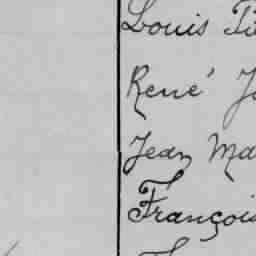 Louis
René
Jean Ma
François